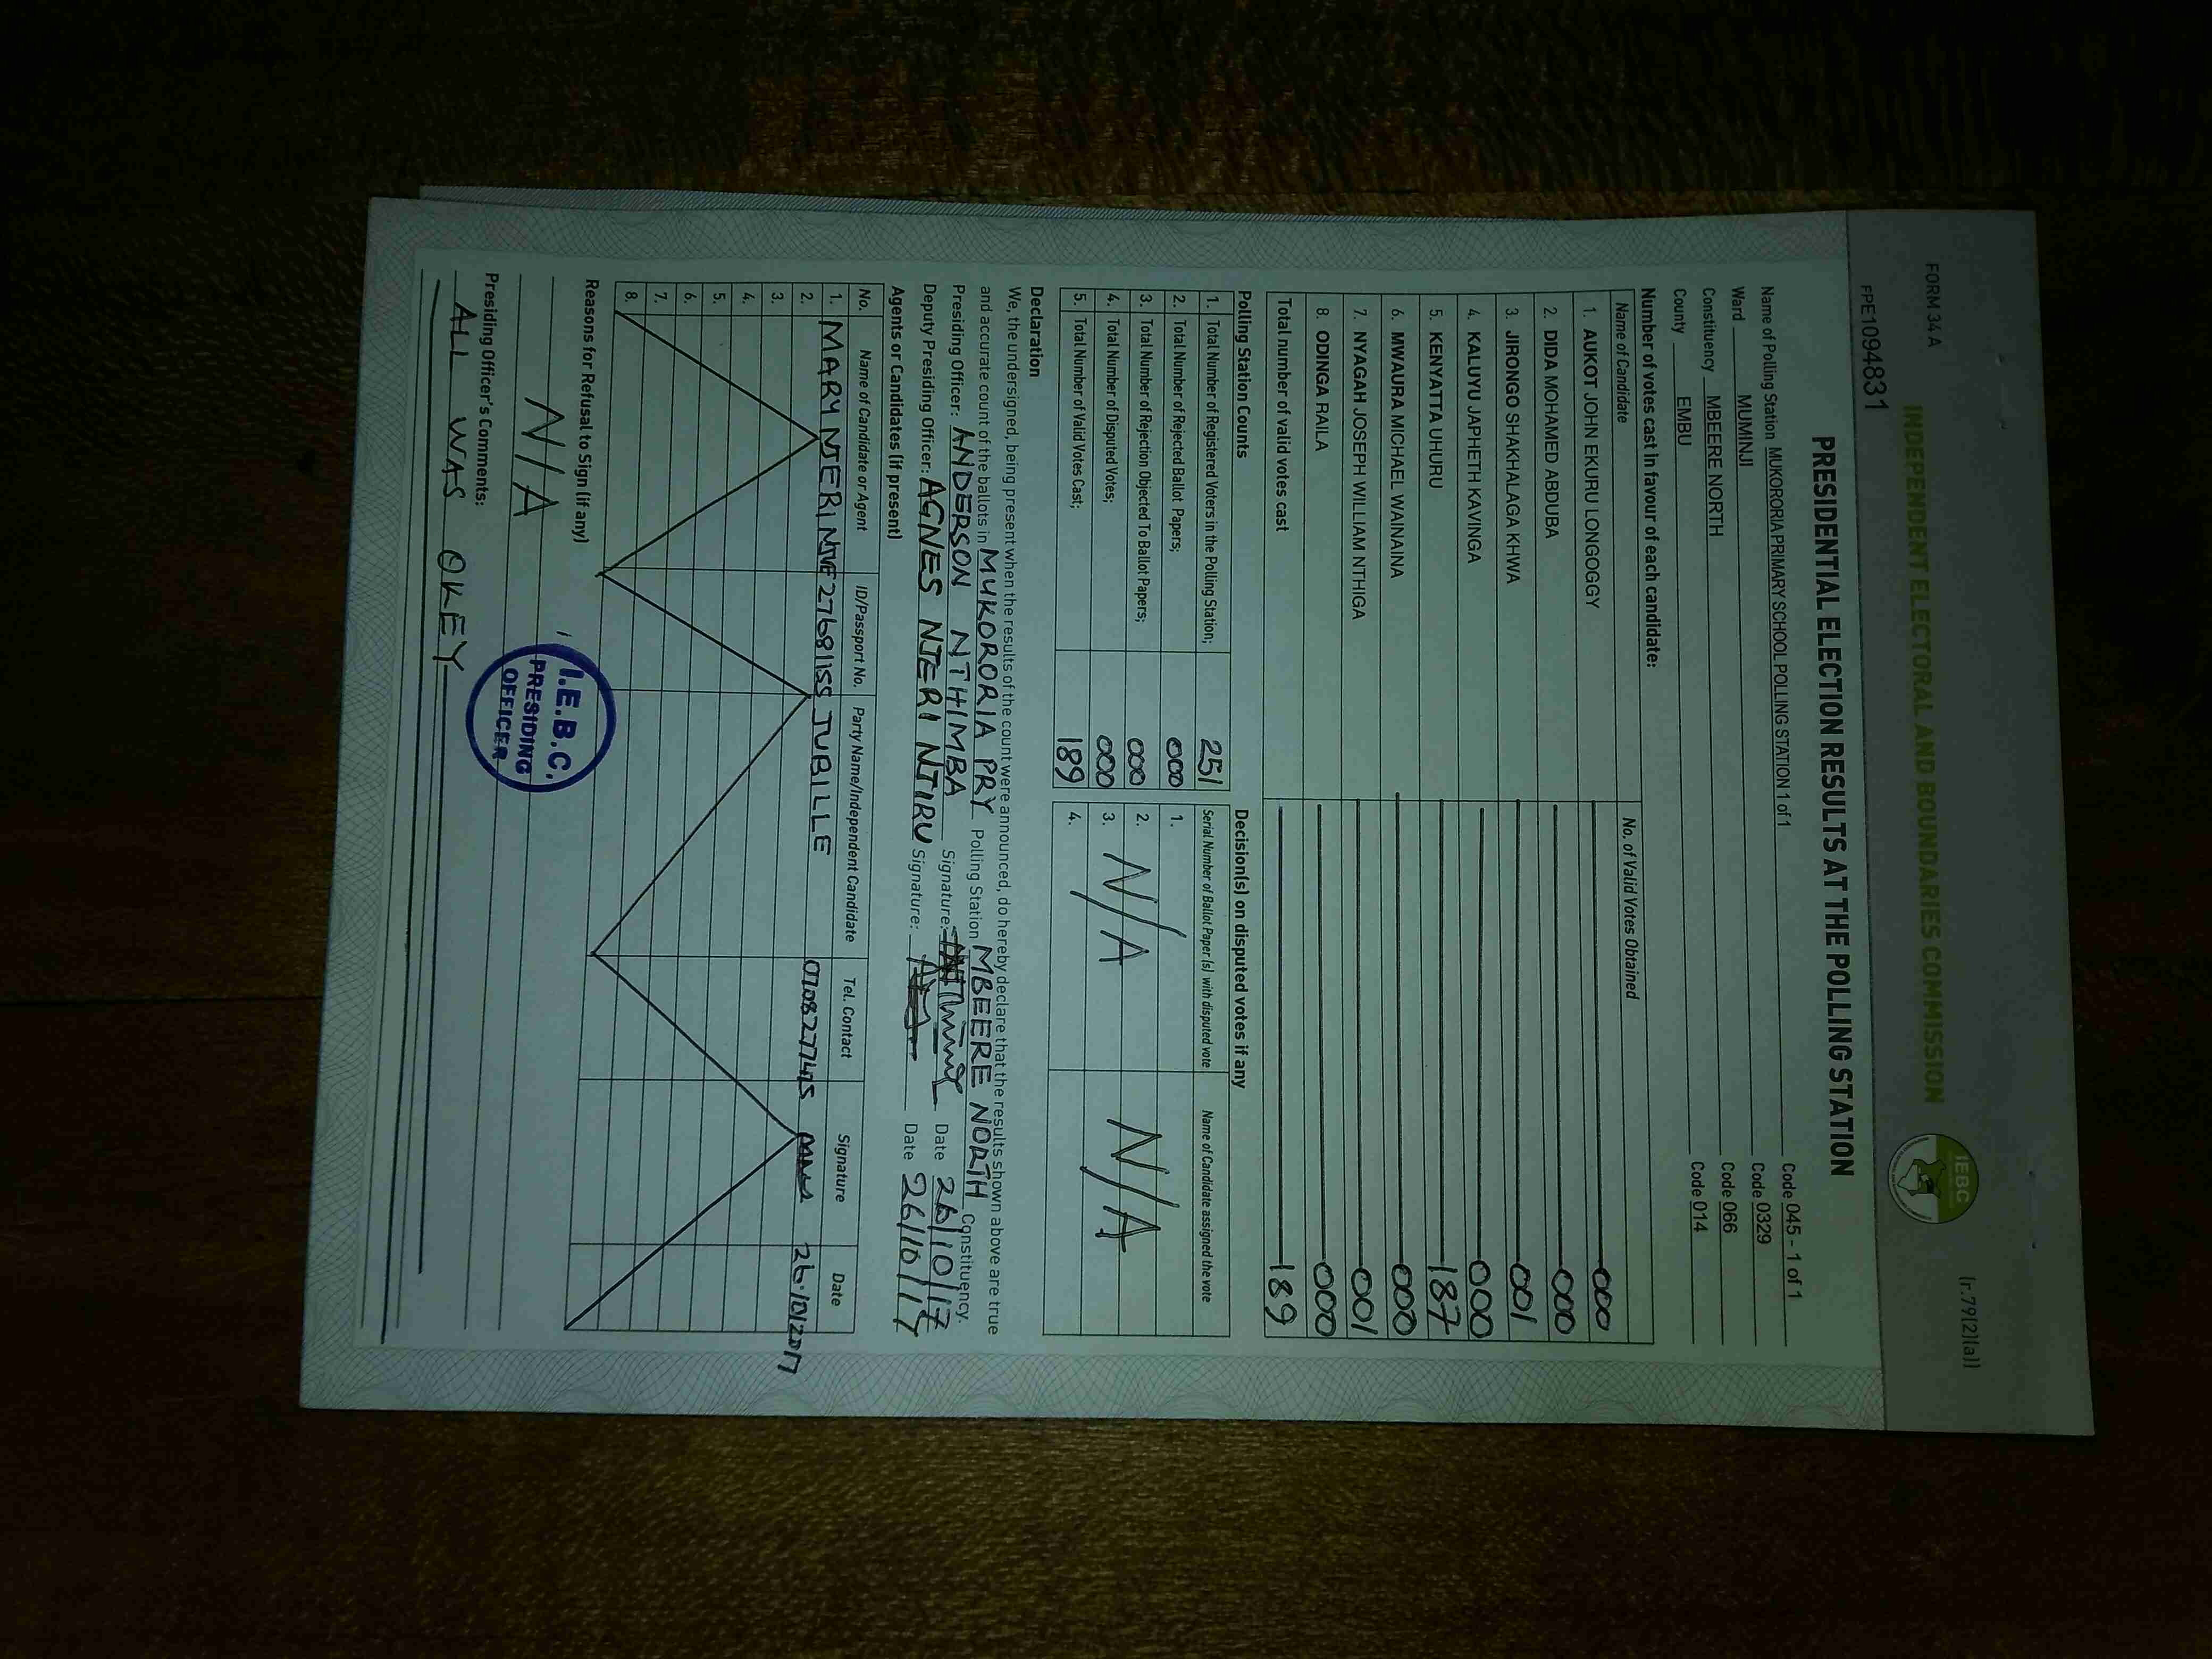 FORM 34A
(r.79(2)(a))
INDEPENDENT ELECTORAL AND BOUNDARIES COMMISSION
IEBC
FPE1094831
PRESIDENTIAL ELECTION RESULTS AT THE POLLING STATION
Name of Polling Station MUKORORIA PRIMARY SCHOOL POLLING STATION 1 of 1 Code 045 - 1 of 1
Ward MUMINJI Code 0329
Constituency MBEERE NORTH Code 066
County EMBU Code 014
Number of votes cast in favour of each candidate:
Name of Candidate No. of Valid Votes Obtained
1. AUKOT JOHN EKURU LONGOGGY 000
2. DIDA MOHAMED ABDUBA 000
3. JIRONGO SHAKHALAGA KHWA 001
4. KALUYU JAPHETH KAVINGA 000
5. KENYATTA UHURU 187
6. MWAURA MICHAEL WAINAINA 000
7. NYAGAH JOSEPH WILLIAM NTHIGA 001
8. ODINGA RAILA 000
Total number of valid votes cast 189
Polling Station Counts
1. Total Number of Registered Voters in the Polling Station; 251
2. Total Number of Rejected Ballot Papers; 000
3. Total Number of Rejection Objected To Ballot Papers; 000
4. Total Number of Disputed Votes; 000
5. Total Number of Valid Votes Cast; 189
Decision(s) on disputed votes if any
Serial Number of Ballot Paper (s) with disputed vote Name of Candidate assigned the vote
1.
2.
3. N/A N/A
4.
Declaration
We, the undersigned, being present when the results of the count were announced, do hereby declare that the results shown above are true
and accurate count of the ballots in MUKORORIA PRY Polling Station MBEERE NORTH Constituency.
Presiding Officer: ANDERSON NTHIMBA Signature: Date 26/10/17
Deputy Presiding Officer: AGNES NJERI NTIRU Signature: Date 26/10/17
Agents or Candidates (if present)
No. Name of Candidate or Agent ID/Passport No. Party Name/Independent Candidate Tel. Contact Signature Date
1. MARY NJERI 27681155 JUBILLE 0708277415 26.10/2017
2.
3.
4.
5.
6.
7.
8.
Reasons for Refusal to Sign (if any)
N/A
Presiding Officer's Comments:
ALL WAS OKEY
I.E.B.C.
PRESIDING
OFFICER